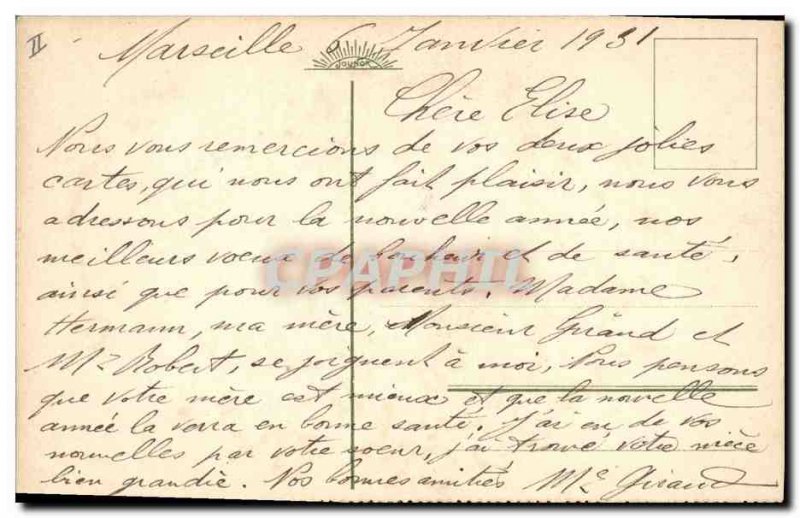 II
Marseille 6 Janvier 1931
JOUNOK
Chère Elise
Nous vous remercions de vos deux jolies
cartes, qui nous ont fait plaisir, nous vous
adressons pour la nouvelle année, nos
meilleurs voeux de bonheur et de santé,
CPAPHIL
ainsi que pour vos parents. Madame
Hermann, ma mère, Monsieur Giraud et
Mr Robert, se joignent à moi, Nous pensons
que votre mère est mieux et que la nouvelle
année la verra en bonne santé. J'ai eu de vos
nouvelles par votre soeur, j'ai trouvé votre nièce
bien grandie. Nos bonnes amitiés Me Giraud